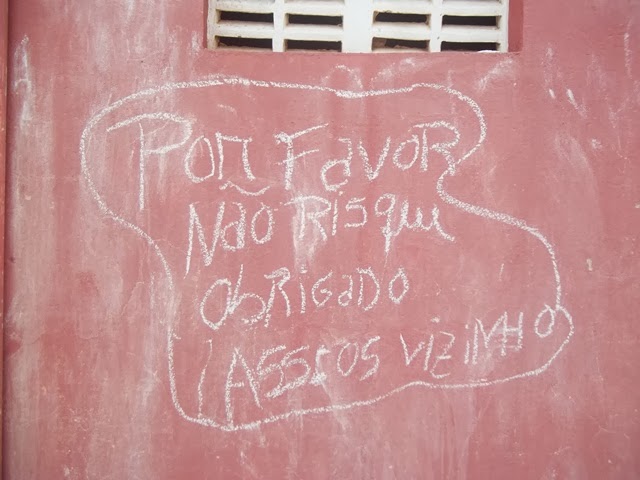 POR FavOR
Não Risqui
obRigaDO
VIZiNHO